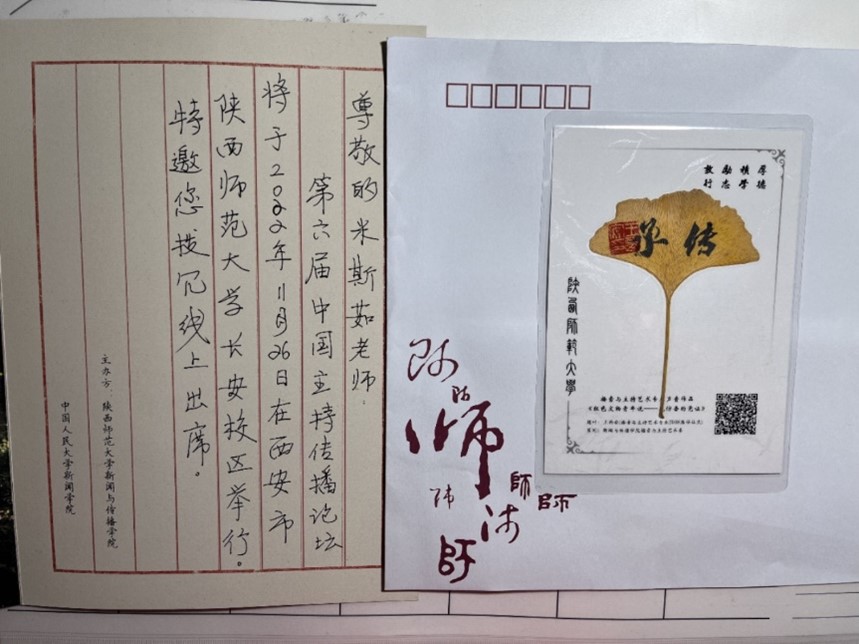 尊敬的米斯茹老师:
第六届中国主持传播论坛
将于2022年11月26日在西安市
陕西师范大学长安校区举行。
特邀您拨冗线上出席。
主办方:陕西师范大学新闻与传播学院
中国人民大学新闻学院
厚德
积学
励志
敦行
传承
陕西师範大學
播音与主持艺术专业
师
師
師
師